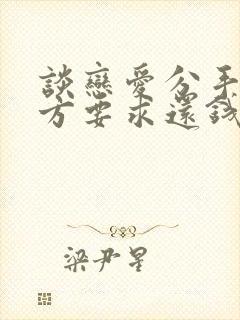 談戀愛分手
方要求還錢
梁尹星